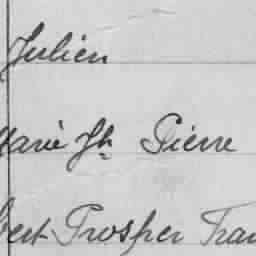 Julien
Marie Jh Pierre
bert Prosper Fran